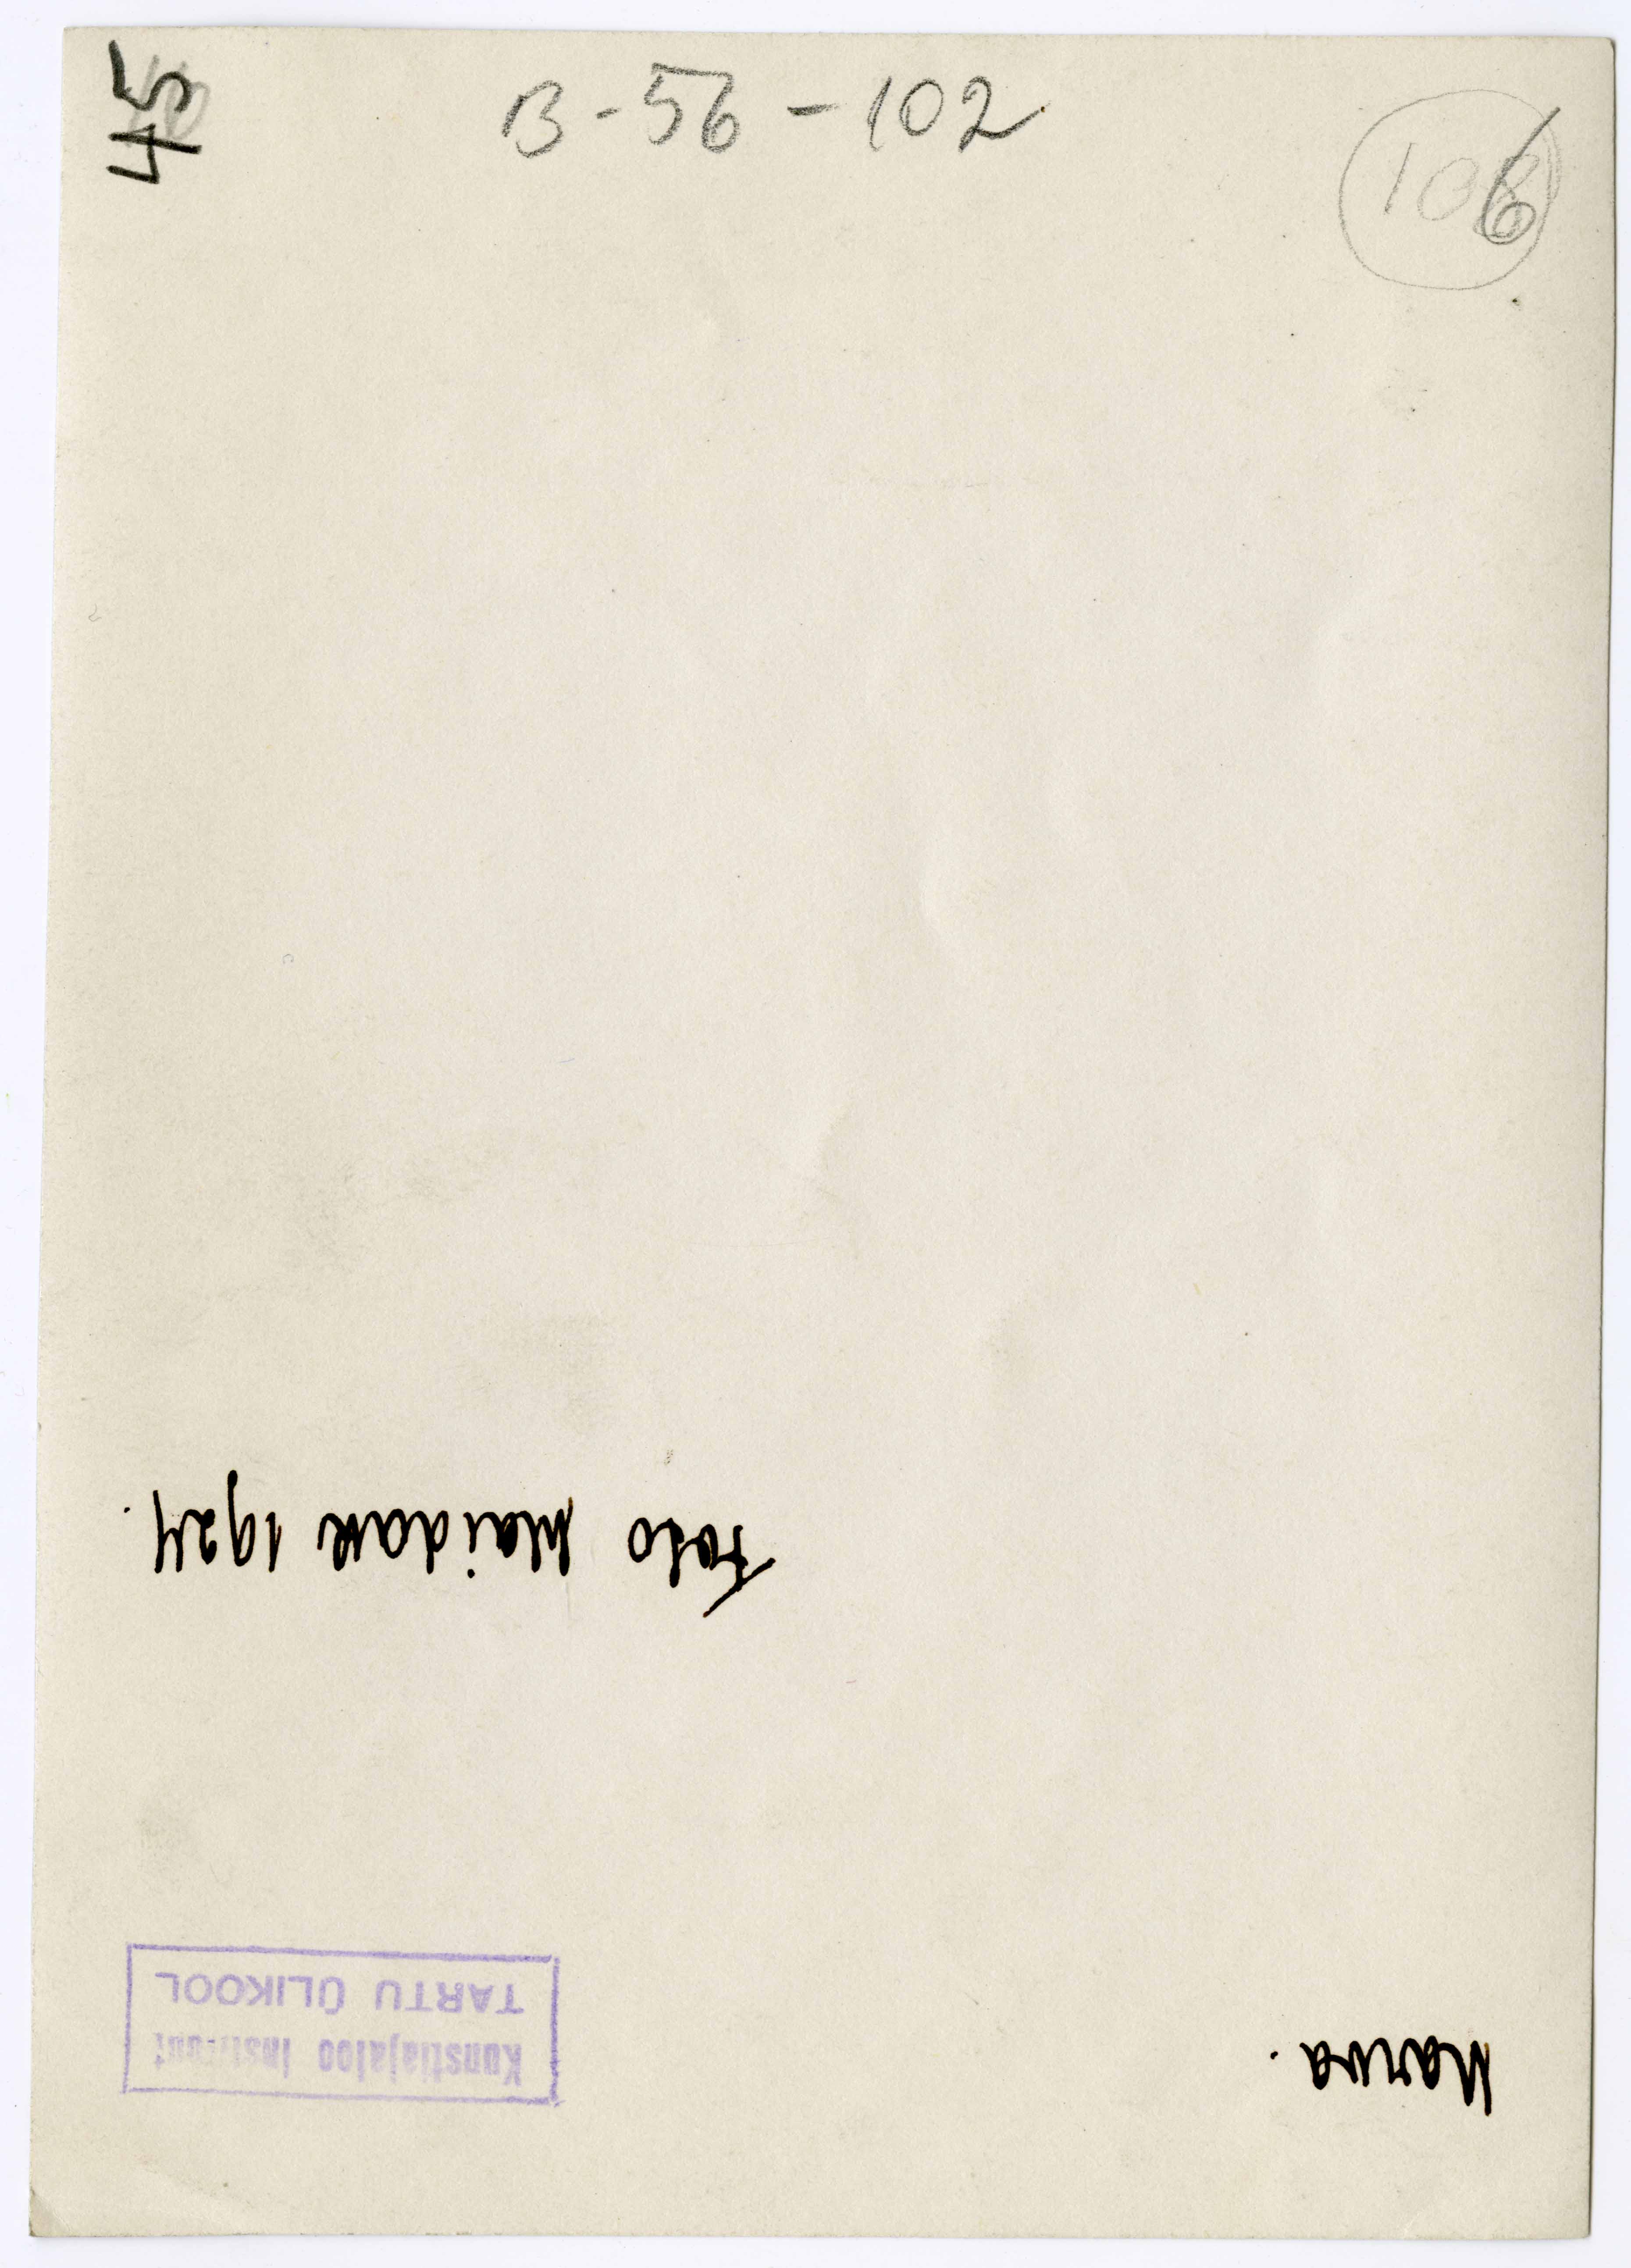 45
B-56-102
106
Narva.
Kunstiajaloo Instituut
TARTU ÜLIKOOL
Foto Maidak 1924.